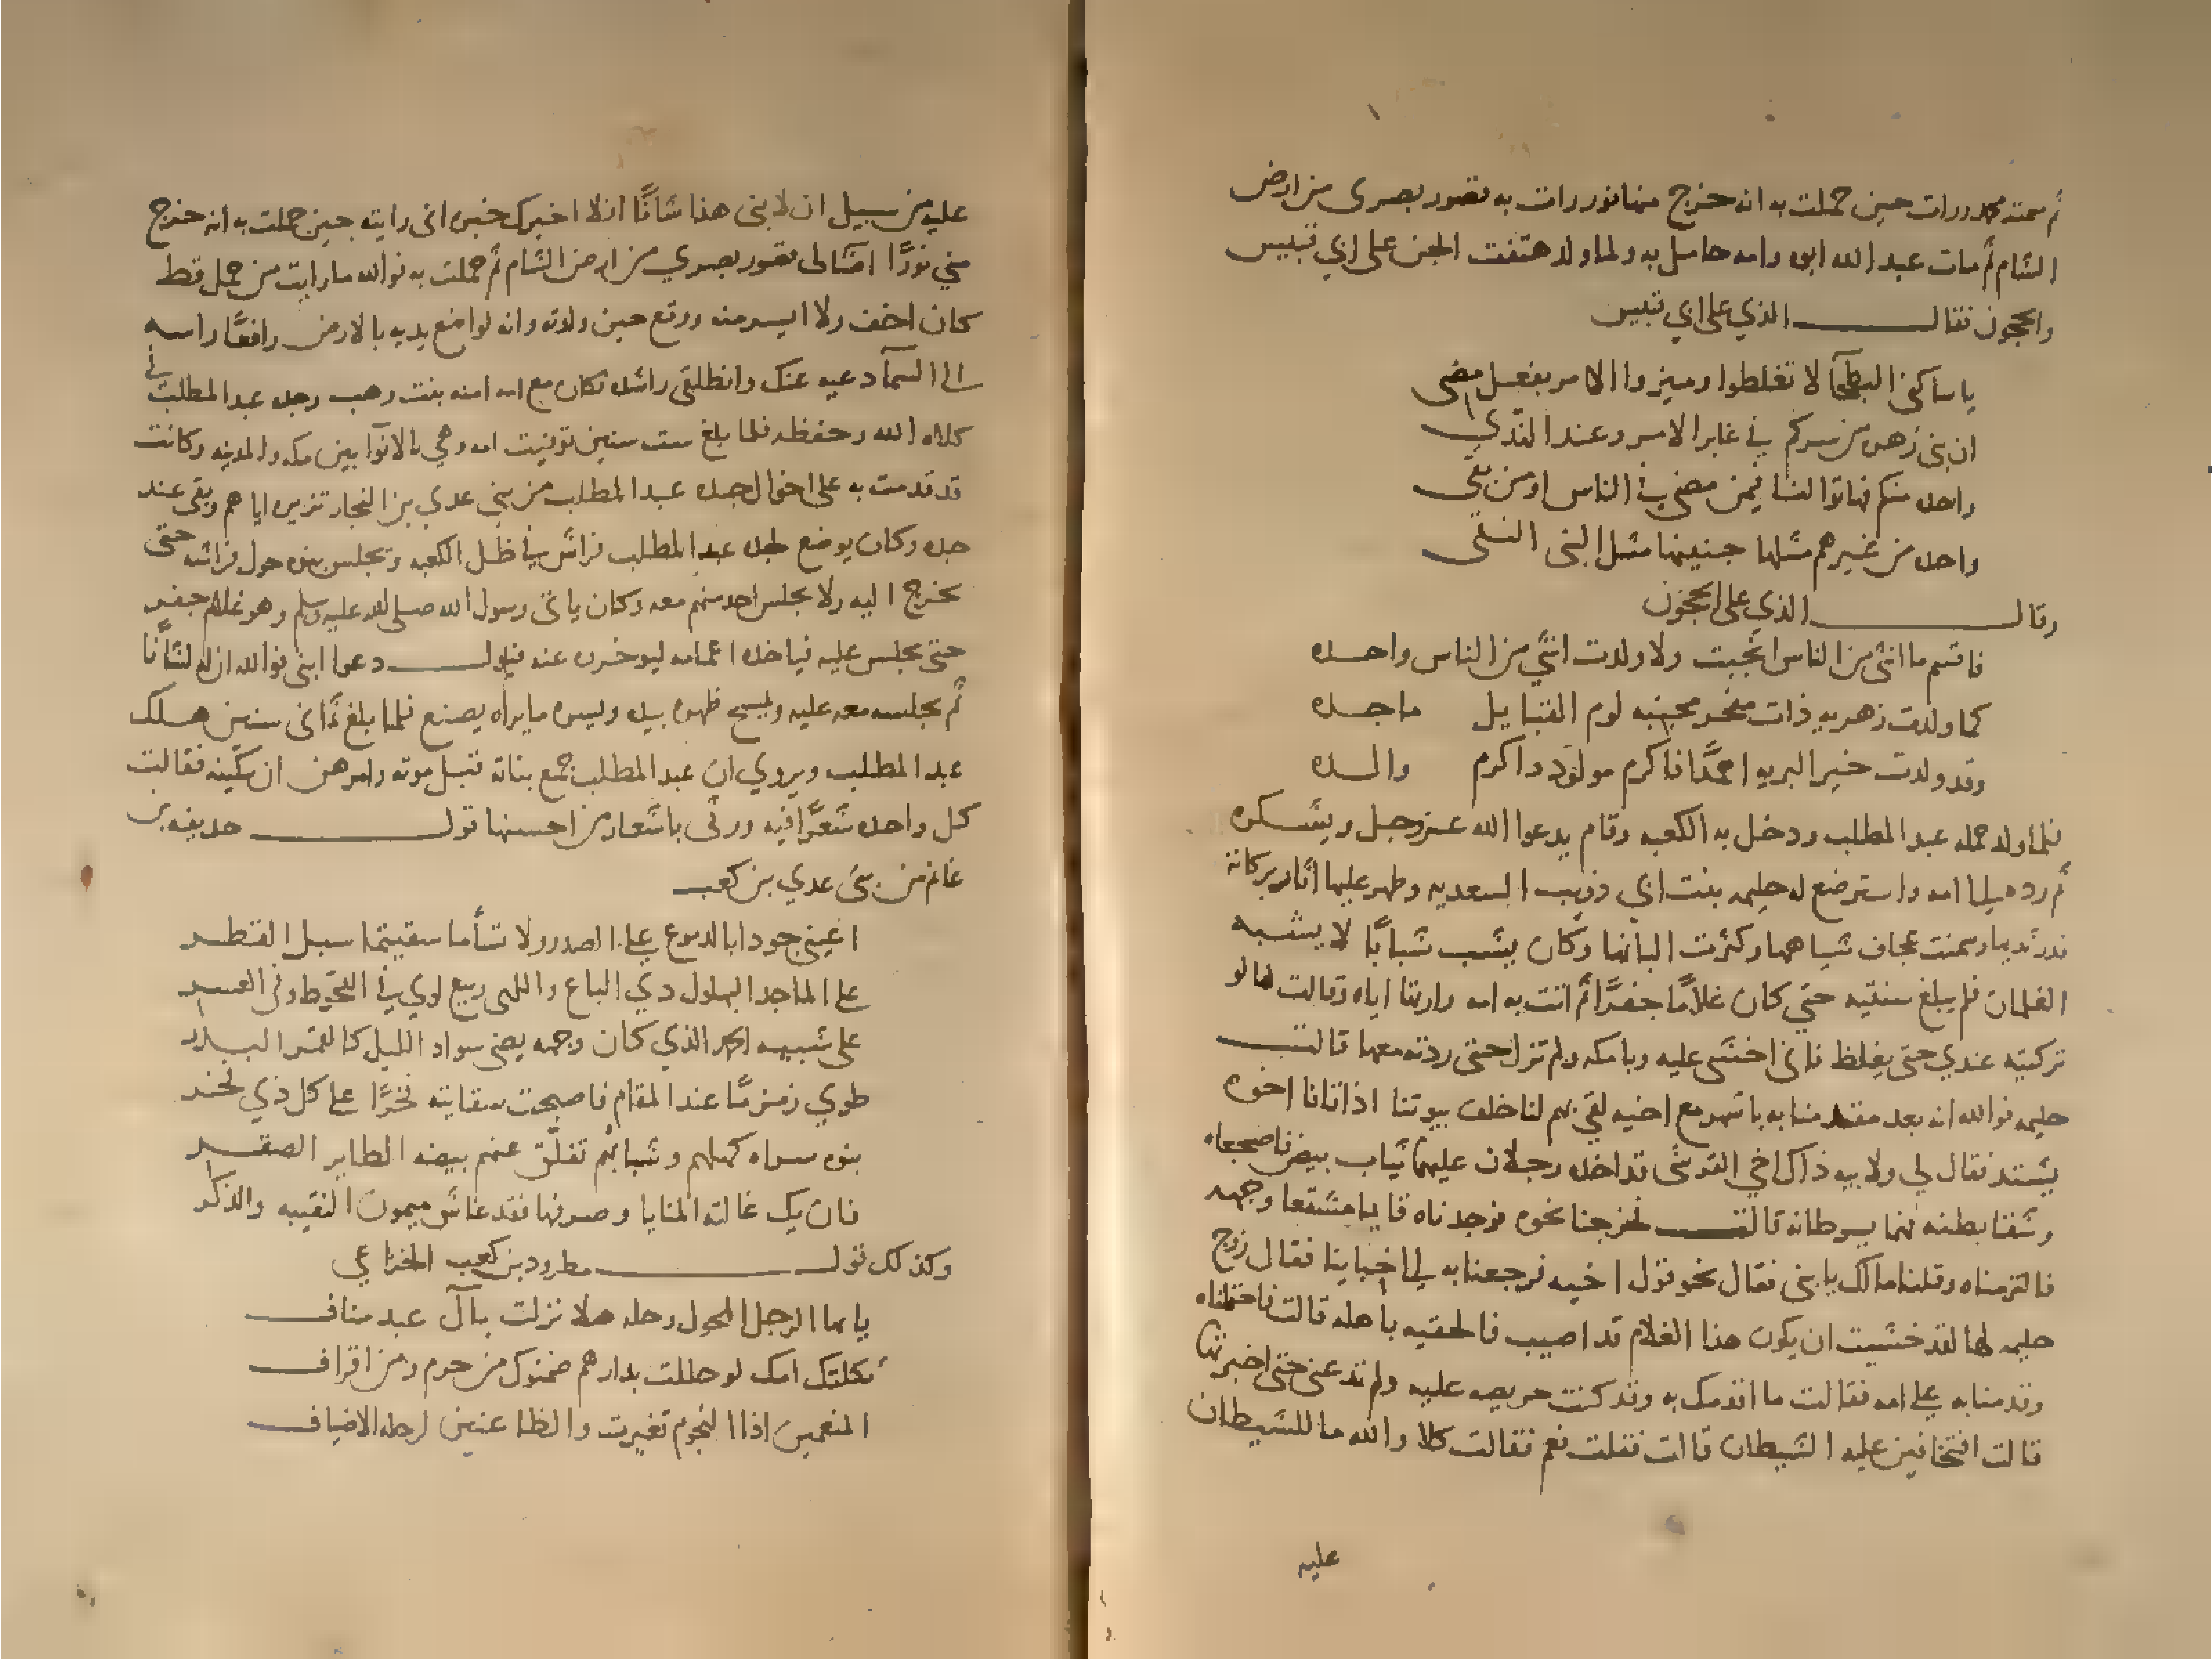 ثم سمته محمد ورات حين حملت به انه خرج منها نور رات به قصور بصرى من ارض
الشام ثم مات عبد الله ابوه وامه حامل به ولما ولد هتفت الجن على ابي قبيس
والحجون فقال الذي على ابي قبيس
يا ساكني البطحآ لا تغلطوا وميزوا الامر بفعل مضى
ان بني زهره من سركم في غابر الامر وعند الندي
واحده منكم فهاتوا لنا فيمن مضى في الناس او من بقي
واحده من غيرهم مثلها جنينها مثل النبي التقى
وقال الذي على الحجون
فاقسم ما انثى من الناس انجبت ولا ولدت انثى من الناس واحده
كما ولدت زهريه ذات مفخر مجنبه لوم القبايل ماجده
وقد ولدت خير البريه احمدًا فاكرم مولود واكرم والده
فلما ولد حمله عبد المطلب ودخل به الكعبه وقام يدعوا الله عز وجل ويشكره
ثم رده الى امه واسترضع له حليمه بنت ابي ذويب السعديه وظهر عليها اثار بركاته
فدر ثديها وسمنت عجاف شياهها وكثرت البانها وكان يشب شبابًا لا يشبه
الغلمان فلم يبلغ سنتيه حتى كان غلامًا جفرًا ثم اتت به امه وارتها اياه وقالت لها لو
تركتيه عندي حتى يغلظ فاني اخشى عليه وبا مكه ولم تزل حتى ردته معها قالت
حليمه فوالله انه بعد مقدمنا به باشهر مع اخيه لفي بهم لنا خلف بيوتنا اذ اتانا اخوه
يشتد فقال لي ولابيه ذاك اخي القرشي قد اخذه رجلان عليهما ثياب بيض فاضجعاه
وشقا بطنه فهما يسوطانه قالت فخرجنا نحوه فوجدناه قايما منتقعا وجهه
فالتزمناه وقلنا مالك يا بني فقال نحو قول اخيه فرجعنا به الى اخباينا فقال زوج
حليمه لها لقد خشيت ان يكون هذا الغلام قد اصيب فالحقيه باهله قالت فاحتملناه
وقدمنا به على امه فقالت ما اقدمك به وقد كنت حريصه عليه ولم تدعني حتى اخبرتها
قالت افتخافين عليه الشيطان قالت فقلت نعم فقالت كلا والله ما للشيطان
عليه
عليه من سبيل ان لابني هذا شانًا افلا اخبرك خبره اني رايته حين حملت به انه خرج
مني نورًا اضا لى قصور بصري من ارض الشام ثم حملت به فوالله ما رايت من حمل قط
كان اخف ولا ايسر منه ووقع حين ولدته وانه لواضع يديه بالارض رافعًا راسه
الى السمآ دعيه عنك وانطلقي راشده فكان مع امه امنه بنت وهب وجده عبد المطلب في
كلاه الله وحفظه فلما بلغ ست سنين توفيت امه وهي بالابوآ بين مكه والمدينه وكانت
قد قدمت به على اخوال جده عبد المطلب من بني عدي بن النجار تزيره اياهم وبقى عند
جده وكان يوضع لجده عبد المطلب فراش في ظل الكعبه ويجلس بنوه حول فراشه حتى
يخرج اليه ولا يجلس احد منهم معه وكان ياتى رسول الله صلى الله عليه وسلم وهو غلام جفر
حتى يجلس عليه فياخذه اعمامه ليوخروه عنه فيقول دعوا ابني فوالله ان له لشأنًا
ثم يجلسه معه عليه ويمسح ظهره بيده ويسره ما يراه يصنع فلما بلغ ثماني سنين هلك
عبد المطلب ويروي ان عبد المطلب جمع بناته قبل موته وامرهن ان يبكينه فقالت
كل واحده شعرًا فيه ورثى باشعار من احسنها قول حذيفه بن
غانم من بنى عدي بن كعب
اعيني جودا بالدموع على الصدر ولا تسأما سقيتما سبل القطر
على الماجد البهلول ذي الباع واللهى ربيع لوي في القحوط وفي العسر
على شيبه الحمد الذي كان وجهه يضى سواد الليل كالقمر البدر
طوي زمزمًا عند المقام فاصبحت سقايته فخرًا على كل ذي فخر
بنوه سراه كهلهم وشبابهم تفلق عنهم بيضه الطاير الصقر
فان يك غالته المنايا وصرفها فقد عاش ميمون النقيبه والذكر
وكذلك قول مطرود بن كعب الخزاعي
يا ايها الرجل المحول رحله هلا نزلت بآل عبد مناف
ثكلتك امك لو حللت بدارهم ضمنوك من جرم ومن اقراف
المنعمين اذا النجوم تغيرت والظاعنين لرحله الاضياف